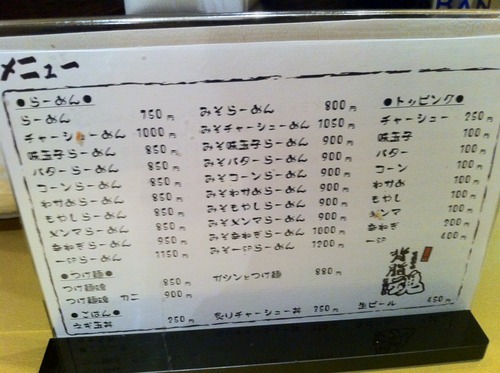 メニュー
●らーめん●
らーめん 750円
チャーシューめん 1000円
味玉子らーめん 850円
バターらーめん 850円
コーンらーめん 850円
わかめらーめん 850円
もやしらーめん 850円
メンマらーめん 850円
辛ねぎらーめん 950円
一SPらーめん 1150円
みそらーめん 800円
みそチャーシューめん 1050円
みそ味玉子らーめん 900円
みそバターらーめん 900円
みそコーンらーめん 900円
みそわかめらーめん 900円
みそもやしらーめん 900円
みそメンマらーめん 900円
みそ辛ねぎらーめん 1000円
みそ一SPらーめん 1200円
●トッピング●
チャーシュー 250円
味玉子 100円
バター 100円
コーン 100円
わかめ 100円
もやし 100円
メンマ 100円
辛ねぎ 200円
一SP 400円
●つけ麺●
つけ麺 850円
つけ麺 カニ 900円
ガツンとつけ麺 880円
●ごはん●
ねぎ玉丼 250円
炙りチャーシュー丼 350円
生ビール 450円